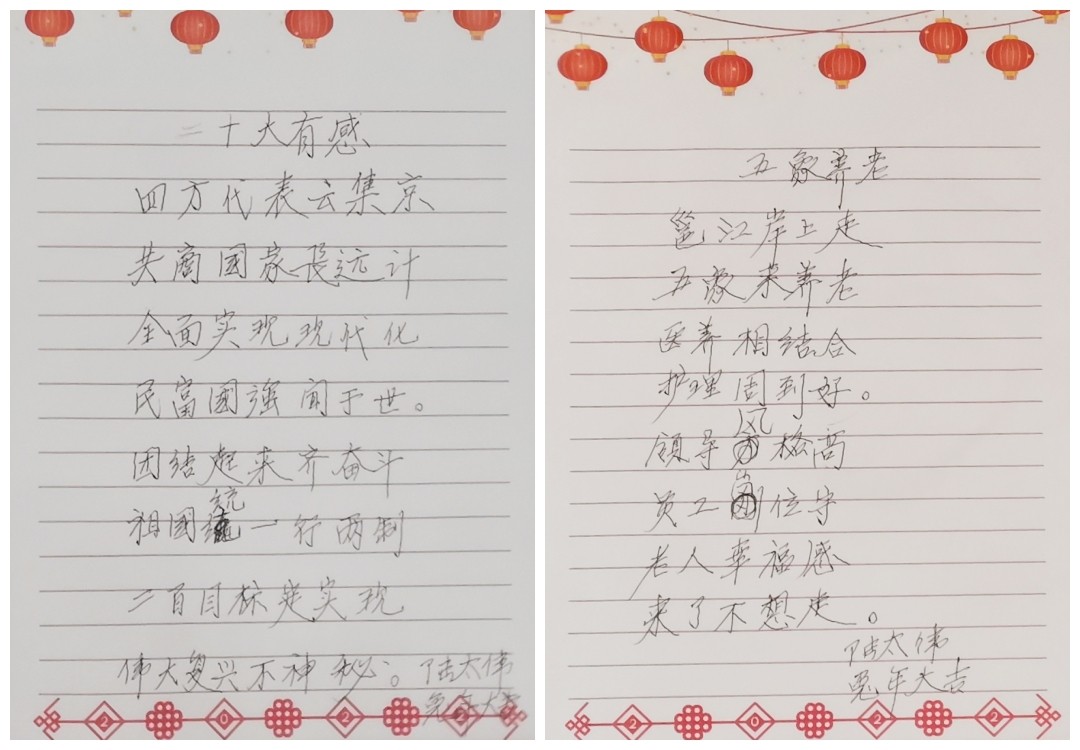 二十大有感
四方代表云集京
共商國家長远计
全面实现现代化
民富國强闻于世。
团结起来齐奋斗
祖國统一行两制
二百目标定实现
伟大复兴不神秘。陆太伟
兔年大吉
2 0 2
五象养老
邕江岸上走
五象来养老
医养相结合
护理周到好。
领导风格高
员工岗位守
老人幸福感
来了不想走。
陆太伟
兔年大吉
2 0 2 2